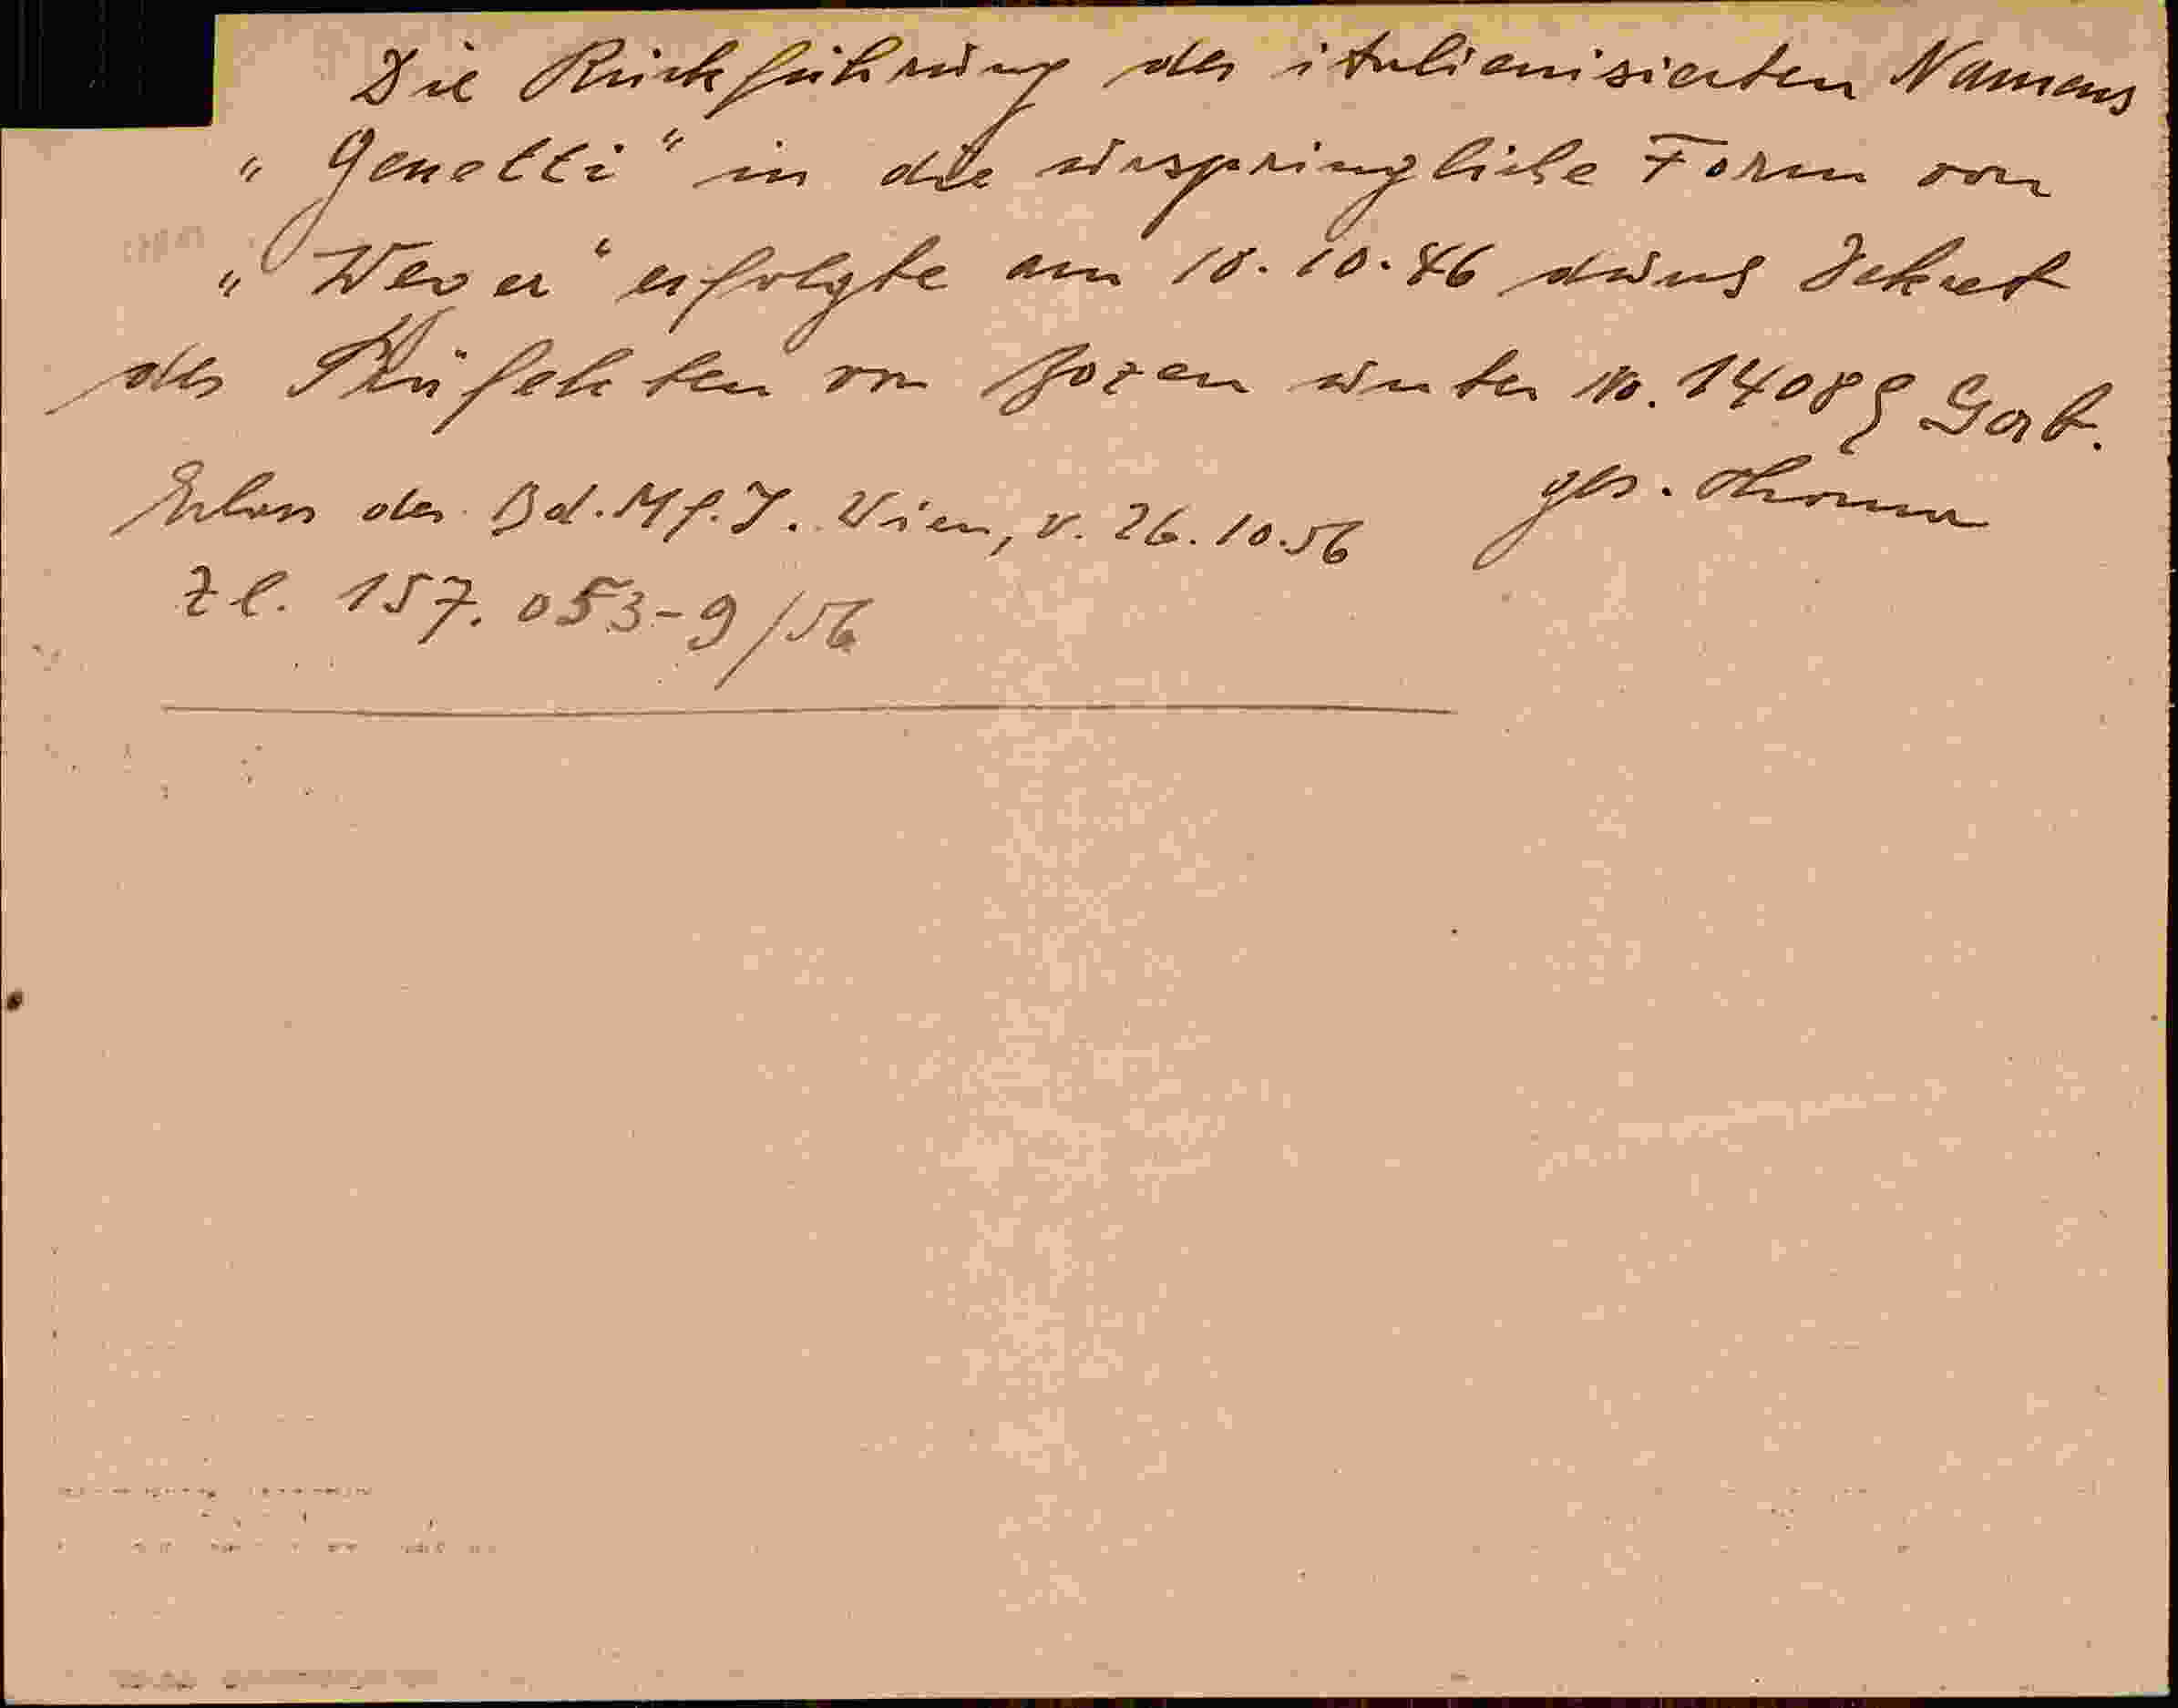 Die Rückführung des italienisierten Namens
„Genetti" in die ursprüngliche Form von
„Wever" erfolgte am 18.10.46 durch Dekret
des Präfekten von Bozen unter No. 14089 Gab.
Erlass des Bd.M.f.I. Wien, v. 26.10.56 gez.
Zl. 157.053-9/56